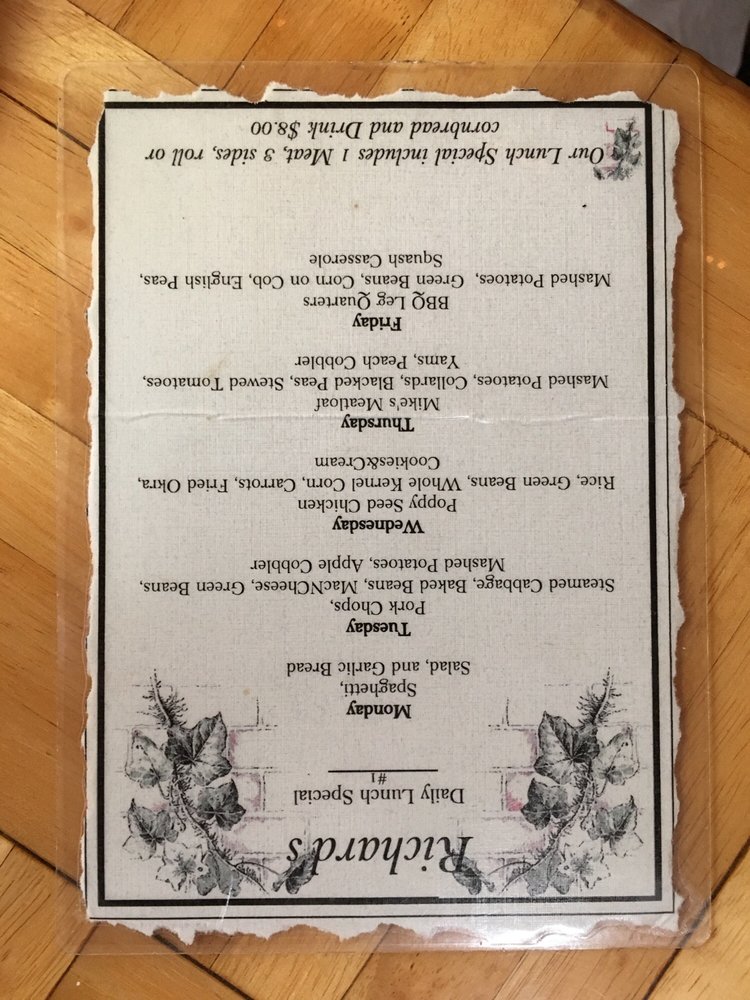 Richard's
Daily Lunch Special
#1
Monday
Spaghetti,
Salad, and Garlic Bread
Tuesday
Pork Chops,
Steamed Cabbage, Baked Beans, MacNCheese, Green Beans,
Mashed Potatoes, Apple Cobbler
Wednesday
Poppy Seed Chicken
Rice, Green Beans, Whole Kernel Corn, Carrots, Fried Okra,
Cookies&Cream
Thursday
Mike's Meatloaf
Mashed Potatoes, Collards, Blacked Peas, Stewed Tomatoes,
Yams, Peach Cobbler
Friday
BBQ Leg Quarters
Mashed Potatoes, Green Beans, Corn on Cob, English Peas,
Squash Casserole
Our Lunch Special includes 1 Meat, 3 sides, roll or
cornbread and Drink $8.00